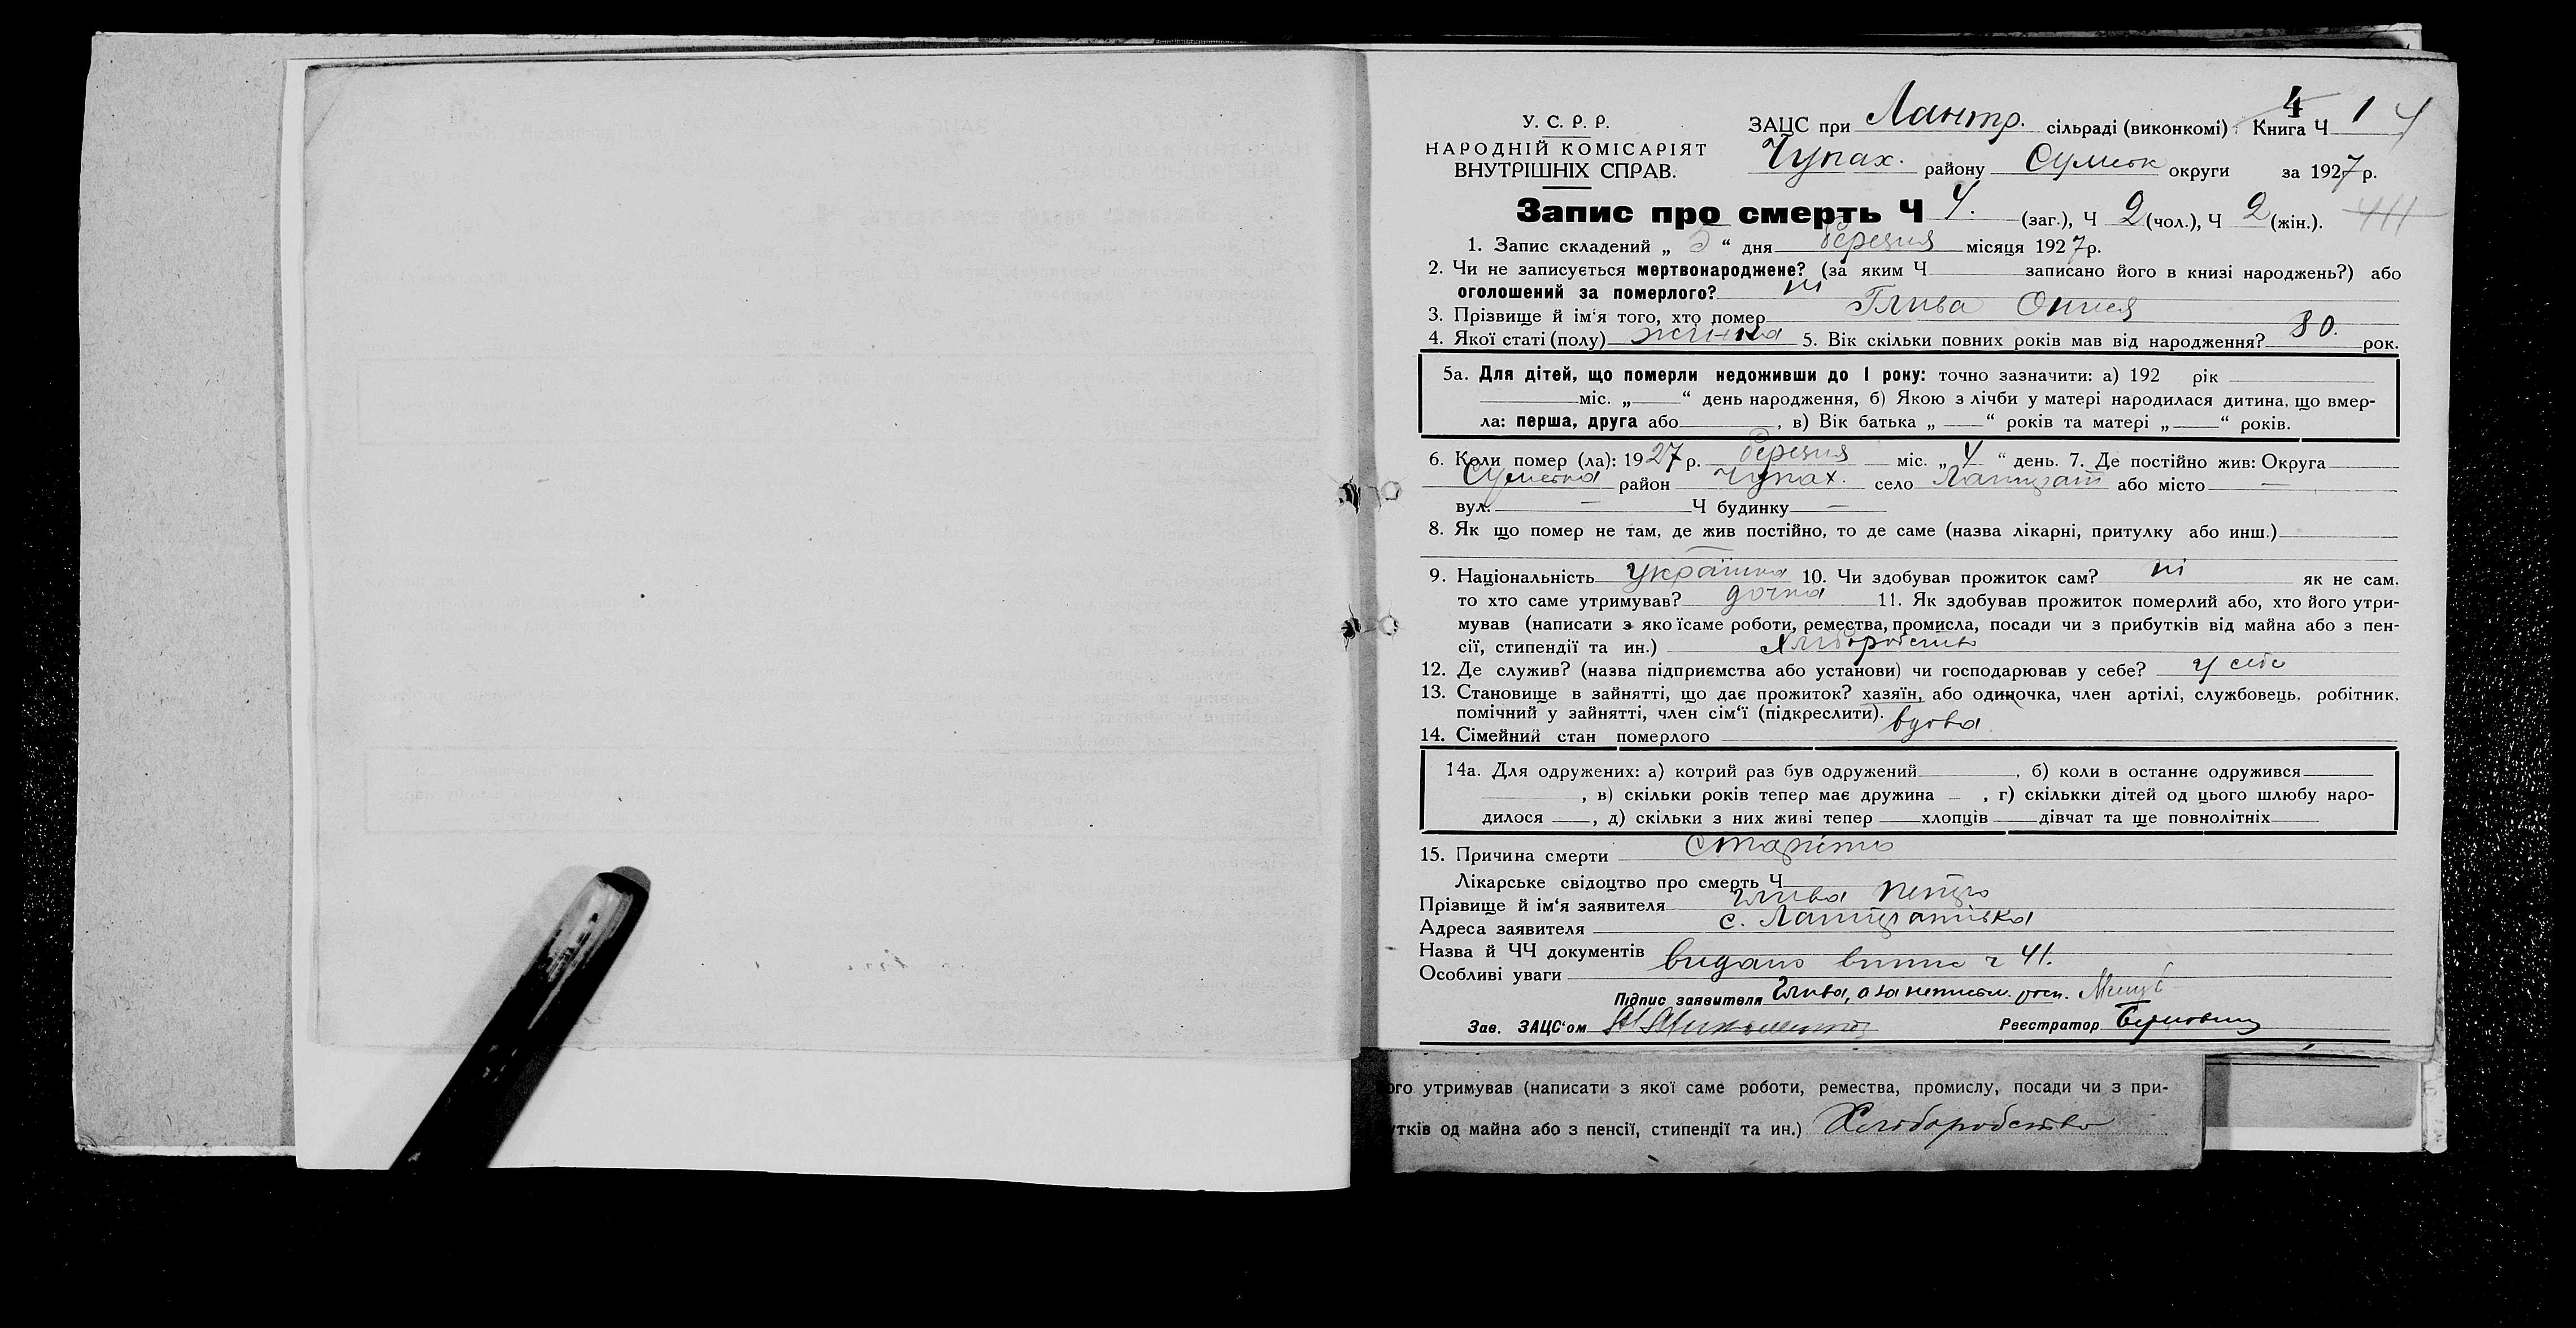 4
У. С. Р. Р.
ЗАЦС при Лантр. сільраді (виконкомі). Книга Ч 1 4
НАРОДНІЙ КОМІСАРІЯТ
ВНУТРІШНІХ СПРАВ.
Чупах. району Сумськ округи за 1927 р.
Запис про смерть Ч 4. (заг.), Ч 2 (чол.), Ч 2 (жін.).
1. Запис складений „ 5 “ дня березня місяця 1927 р.
2. Чи не записується мертвонароджене? (за яким Ч записано його в книзі народжень?) або
оголошений за померлого? ні
3. Прізвище й ім‘я того, хто помер Глива
4. Якої статі (полу) жінка 5. Вік скільки повних років мав від народження? 80. рок.
5а. Для дітей, що померли недоживши до 1 року: точно зазначити: а) 192 рік
міс. „ “ день народження, б) Якою з лічби у матері народилася дитина, що вмер-
ла: перша, друга або , в) Вік батька „ “ років та матері „ “ років.
6. Коли помер (ла): 1927 р. березня міс. „ 4 “ день. 7. Де постійно жив: Округа
Сумська район Чупах. село або місто —
вул. — Ч будинку —
8. Як що помер не там, де жив постійно, то де саме (назва лікарні, притулку або инш.)
9. Національність українка 10. Чи здобував прожиток сам? ні як не сам.
то хто саме утримував? дочка 11. Як здобував прожиток померлий або, хто його утри-
мував (написати з якоїсаме роботи, ремества, промисла, посади чи з прибутків від майна або з пен-
сії, стипендії та ин.) Хліборобство
12. Де служив? (назва підприємства або установи) чи господарював у себе? у себе
13. Становище в зайнятті, що дає прожиток? хазяїн, або одиночка, член артілі, службовець. робітник.
помічний у зайнятті, член сім‘ї (підкреслити).
14. Сімейний стан померлого вдова
14а. Для одружених: а) котрий раз був одружений , б) коли в останнє одружився
, в) скільки років тепер має дружина — , г) скількки дітей од цього шлюбу наро-
дилося , д) скільки з них живі тепер хлопців дівчат та ще повнолітніх
15. Причина смерти старість
Лікарське свідоцтво про смерть Ч
Прізвище й ім‘я заявителя Глива Петро
Адреса заявителя с.
Назва й ЧЧ документів
Особливі уваги видано випис ч 41.
Підпис заявителя Глива, а за неписьм. росп.
Зав. ЗАЦС‘ом Реєстратор
ого утримував (написати з якої саме роботи, ремества, промислу, посади чи з при-
утків од майна або з пенсії, стипендії та ин.) Хліборобство